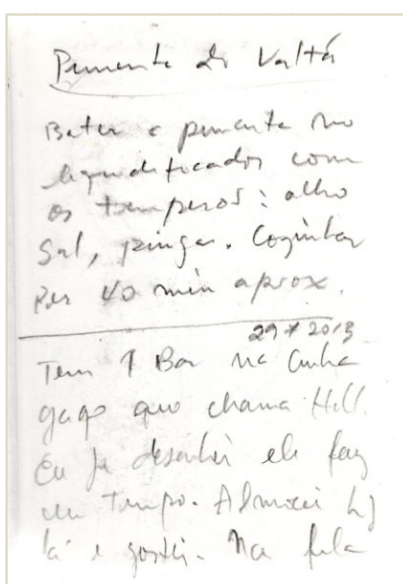 Pimenta do Valtá
Bater a pimenta no
liquidificador com
os temperos: alho
Sal, pinga. Cozinhar
por 40 min aprox.
29 7 2013
Tem 1 Bar na Cunha
gago que chama Hell.
Eu já desenhei ele faz
um tempo. Almocei hj
lá e gostei. Na fila